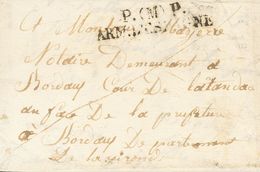 P. (M) P.
ARM. D'ESPAGNE
A Monsieur
Notaire Demeurant a
Bordaux Cour De
au face De la prefeture
a Bordaux De partement
De la gironde